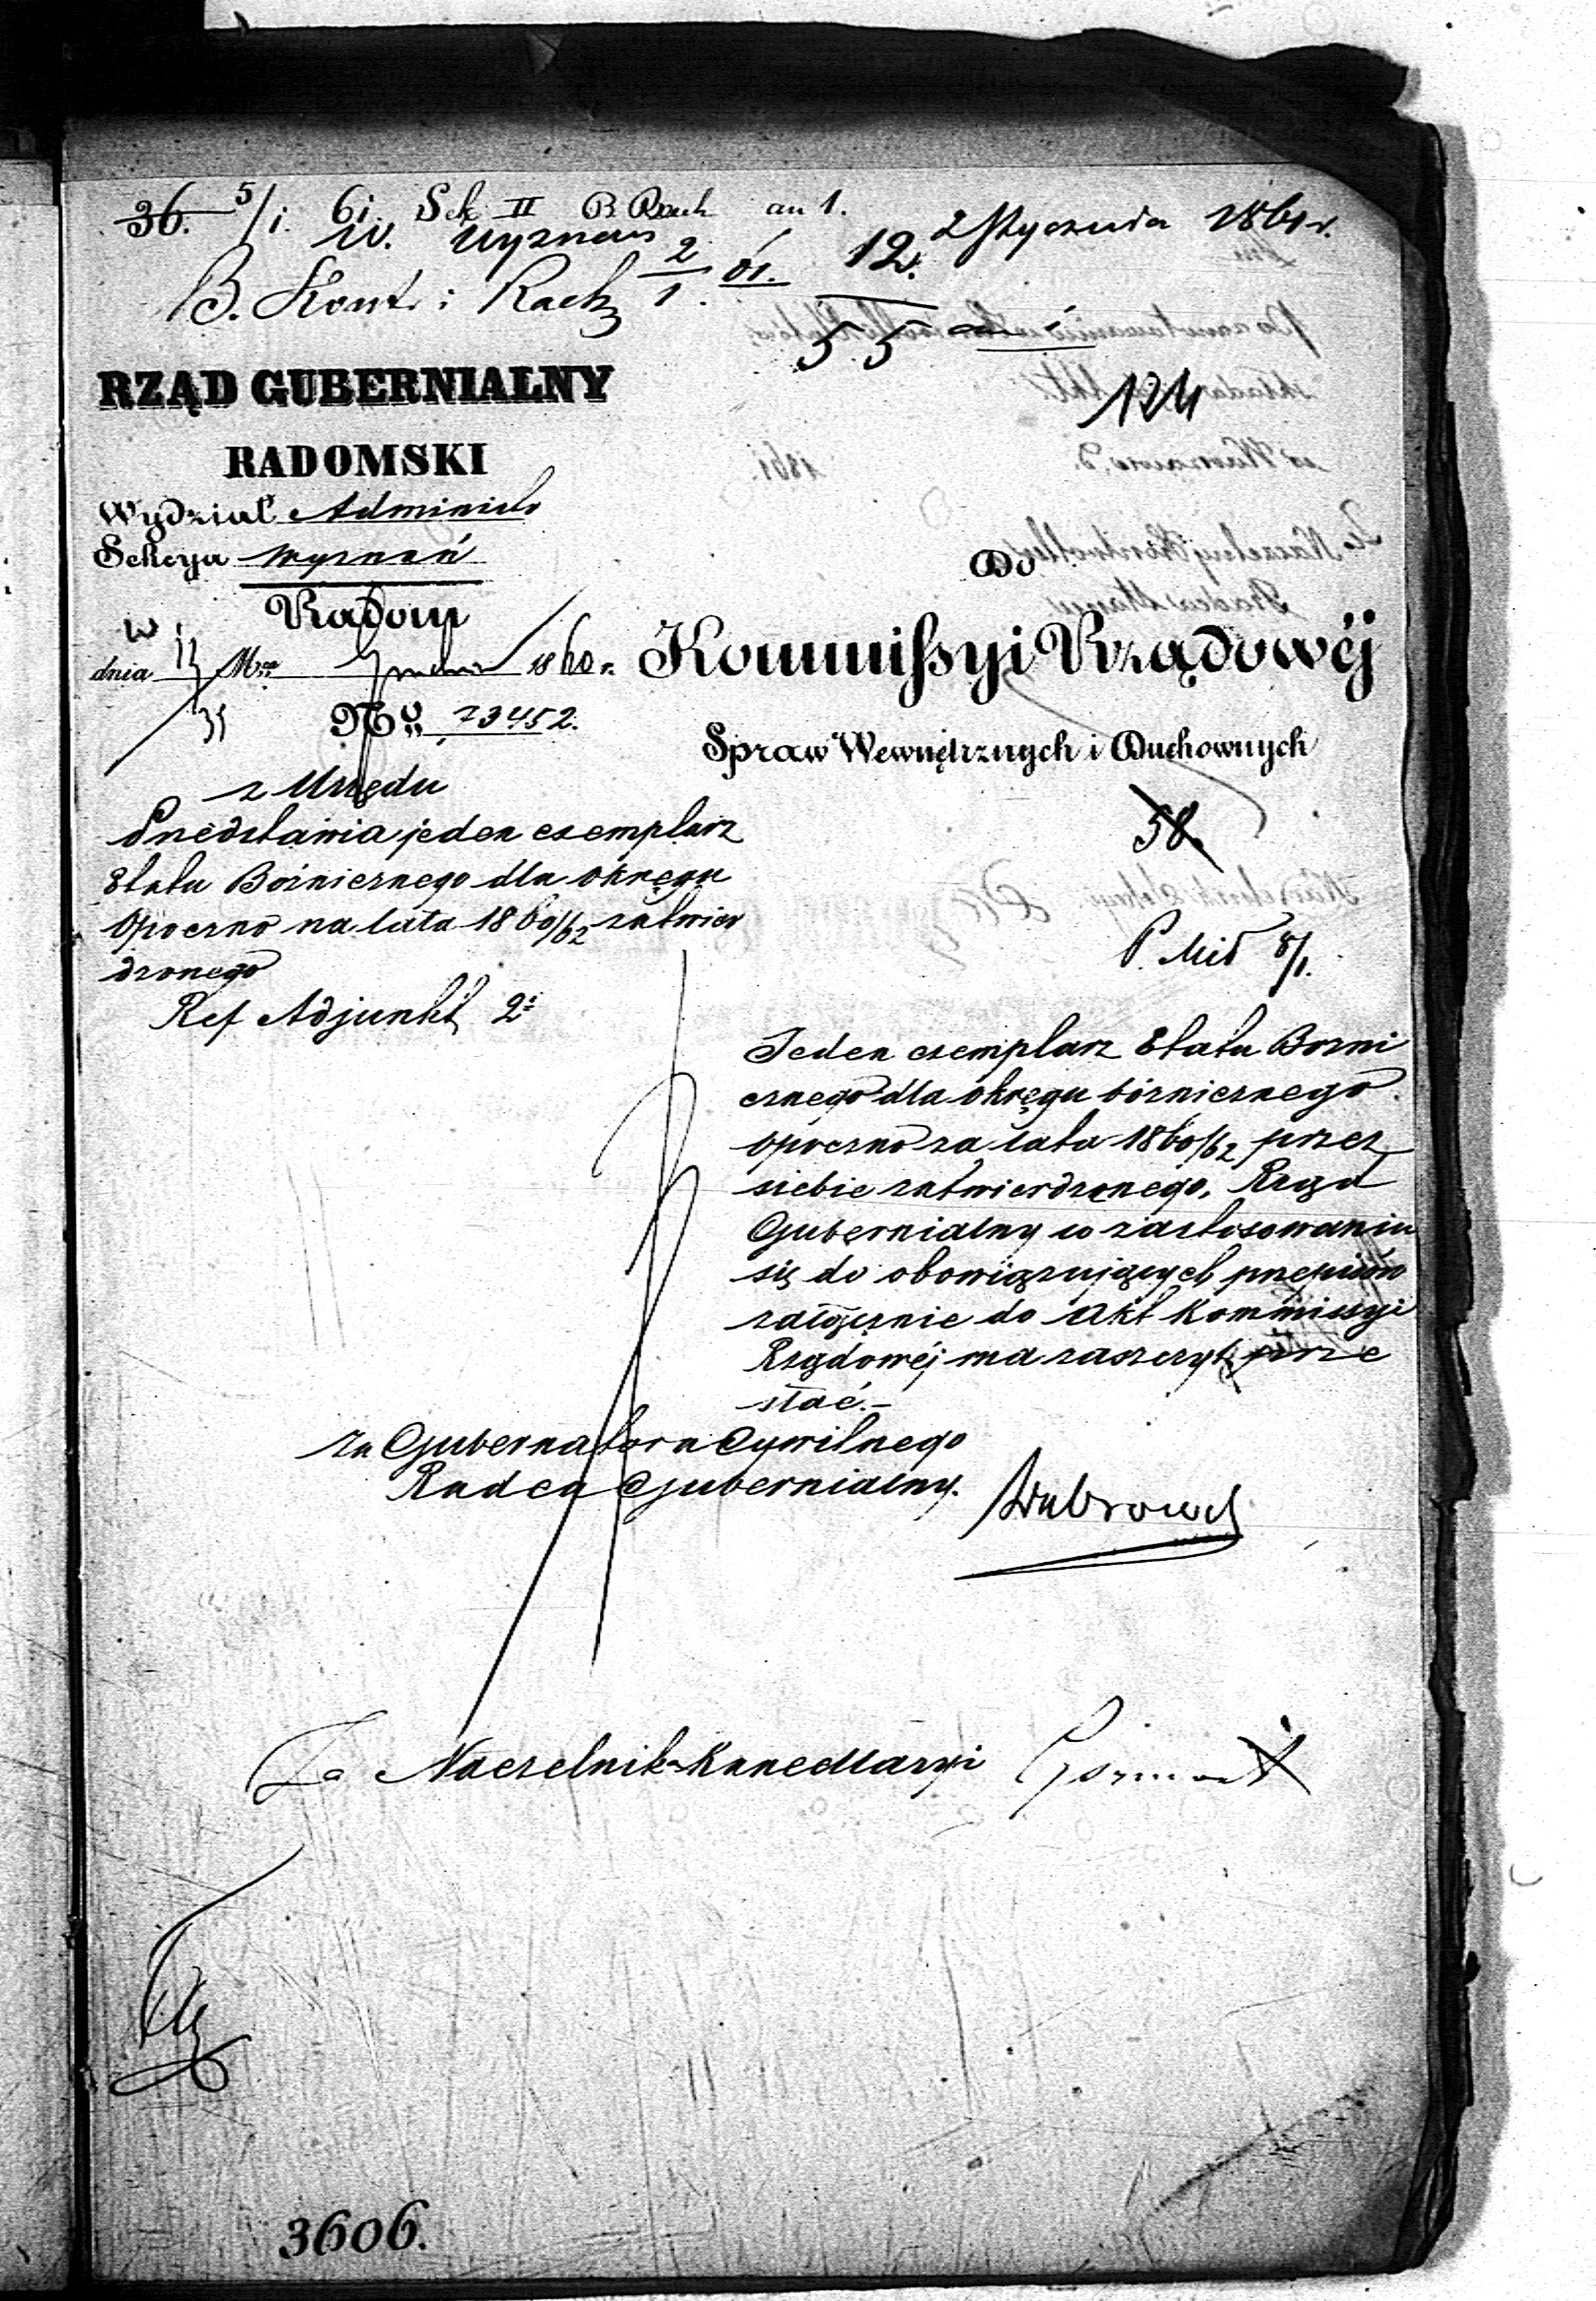 36. 5/1. 61. Sek II B. Rach an 1.
W. Wyznań 12. 2 Stycznia 1861 r.
B. Kontr i Rach 2/1. 61.
55
124
RZĄD GUBERNIALNY
RADOMSKI
Wydział Administr
Sekcya Wyznań
Radom
w
dnia Mca 1860 r.
No. 73452.
Do
Kommissyi Rządowéj
Spraw Wewnętrznych i Duchownych
58.
P. Mił 8/1.
z Urzędu
Przedstawia jeden exemplarz
Etatu Bożnicznego dla okręgu
Opoczno na lata 1860/62 zatwier
dzonego
Ref Adjunkt 2i
Jeden exemplarz Etatu Bożni
cznego dla okręgu bóżnicznego
Opoczno za lata 1860/62 przez
siebie zatwierdzonego, Rząd
Gubernialny w zastosowaniu
się do obowiązujących przepisów
załącznie do Akt Kommissyi
Rządowéj ma zaszczyt prze
słać.-
za Gubernatora Cywilnego
Radca Gubernialny.
Za Naczelnik Kancellaryi
3606.